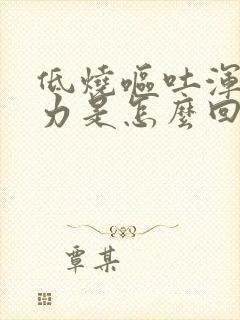 低燒嘔吐渾
力是怎麼回
覃某